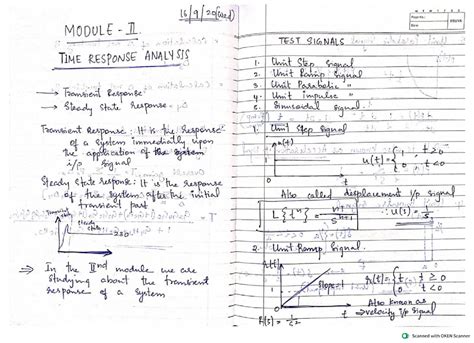 16/9/20(wed)
MODULE - II
TIME RESPONSE ANALYSIS
→ Transient Response
→ Steady State Response
Transient Response: It is the Response
of a system immediately upon
the application of the system
i/p signal
Steady State response: It is the response
of the system after the initial
transient part
Steady
state
⇒ In the IInd module we are
studying about the transient
response of a system
TEST SIGNALS
1. Unit Step Signal
2. Unit Ramp Signal
3. Unit Parabolic "
4. Unit impulse "
5. Sinusoidal Signal
1. Unit Step Signal
u(t)
1
u(t) = { 1, t≥0
0, t<0
Also called displacement i/p signal
L{t^n} = n!/s^(n+1) ∴ U(s) = 1/s
2. Unit Ramp Signal.
r(t)
slope=1
r(t) = { t, t ≥ 0
0, t < 0
Also known as
t ⇒ velocity i/p signal
R(s) = 1/s^2
Scanned with OKEN Scanner